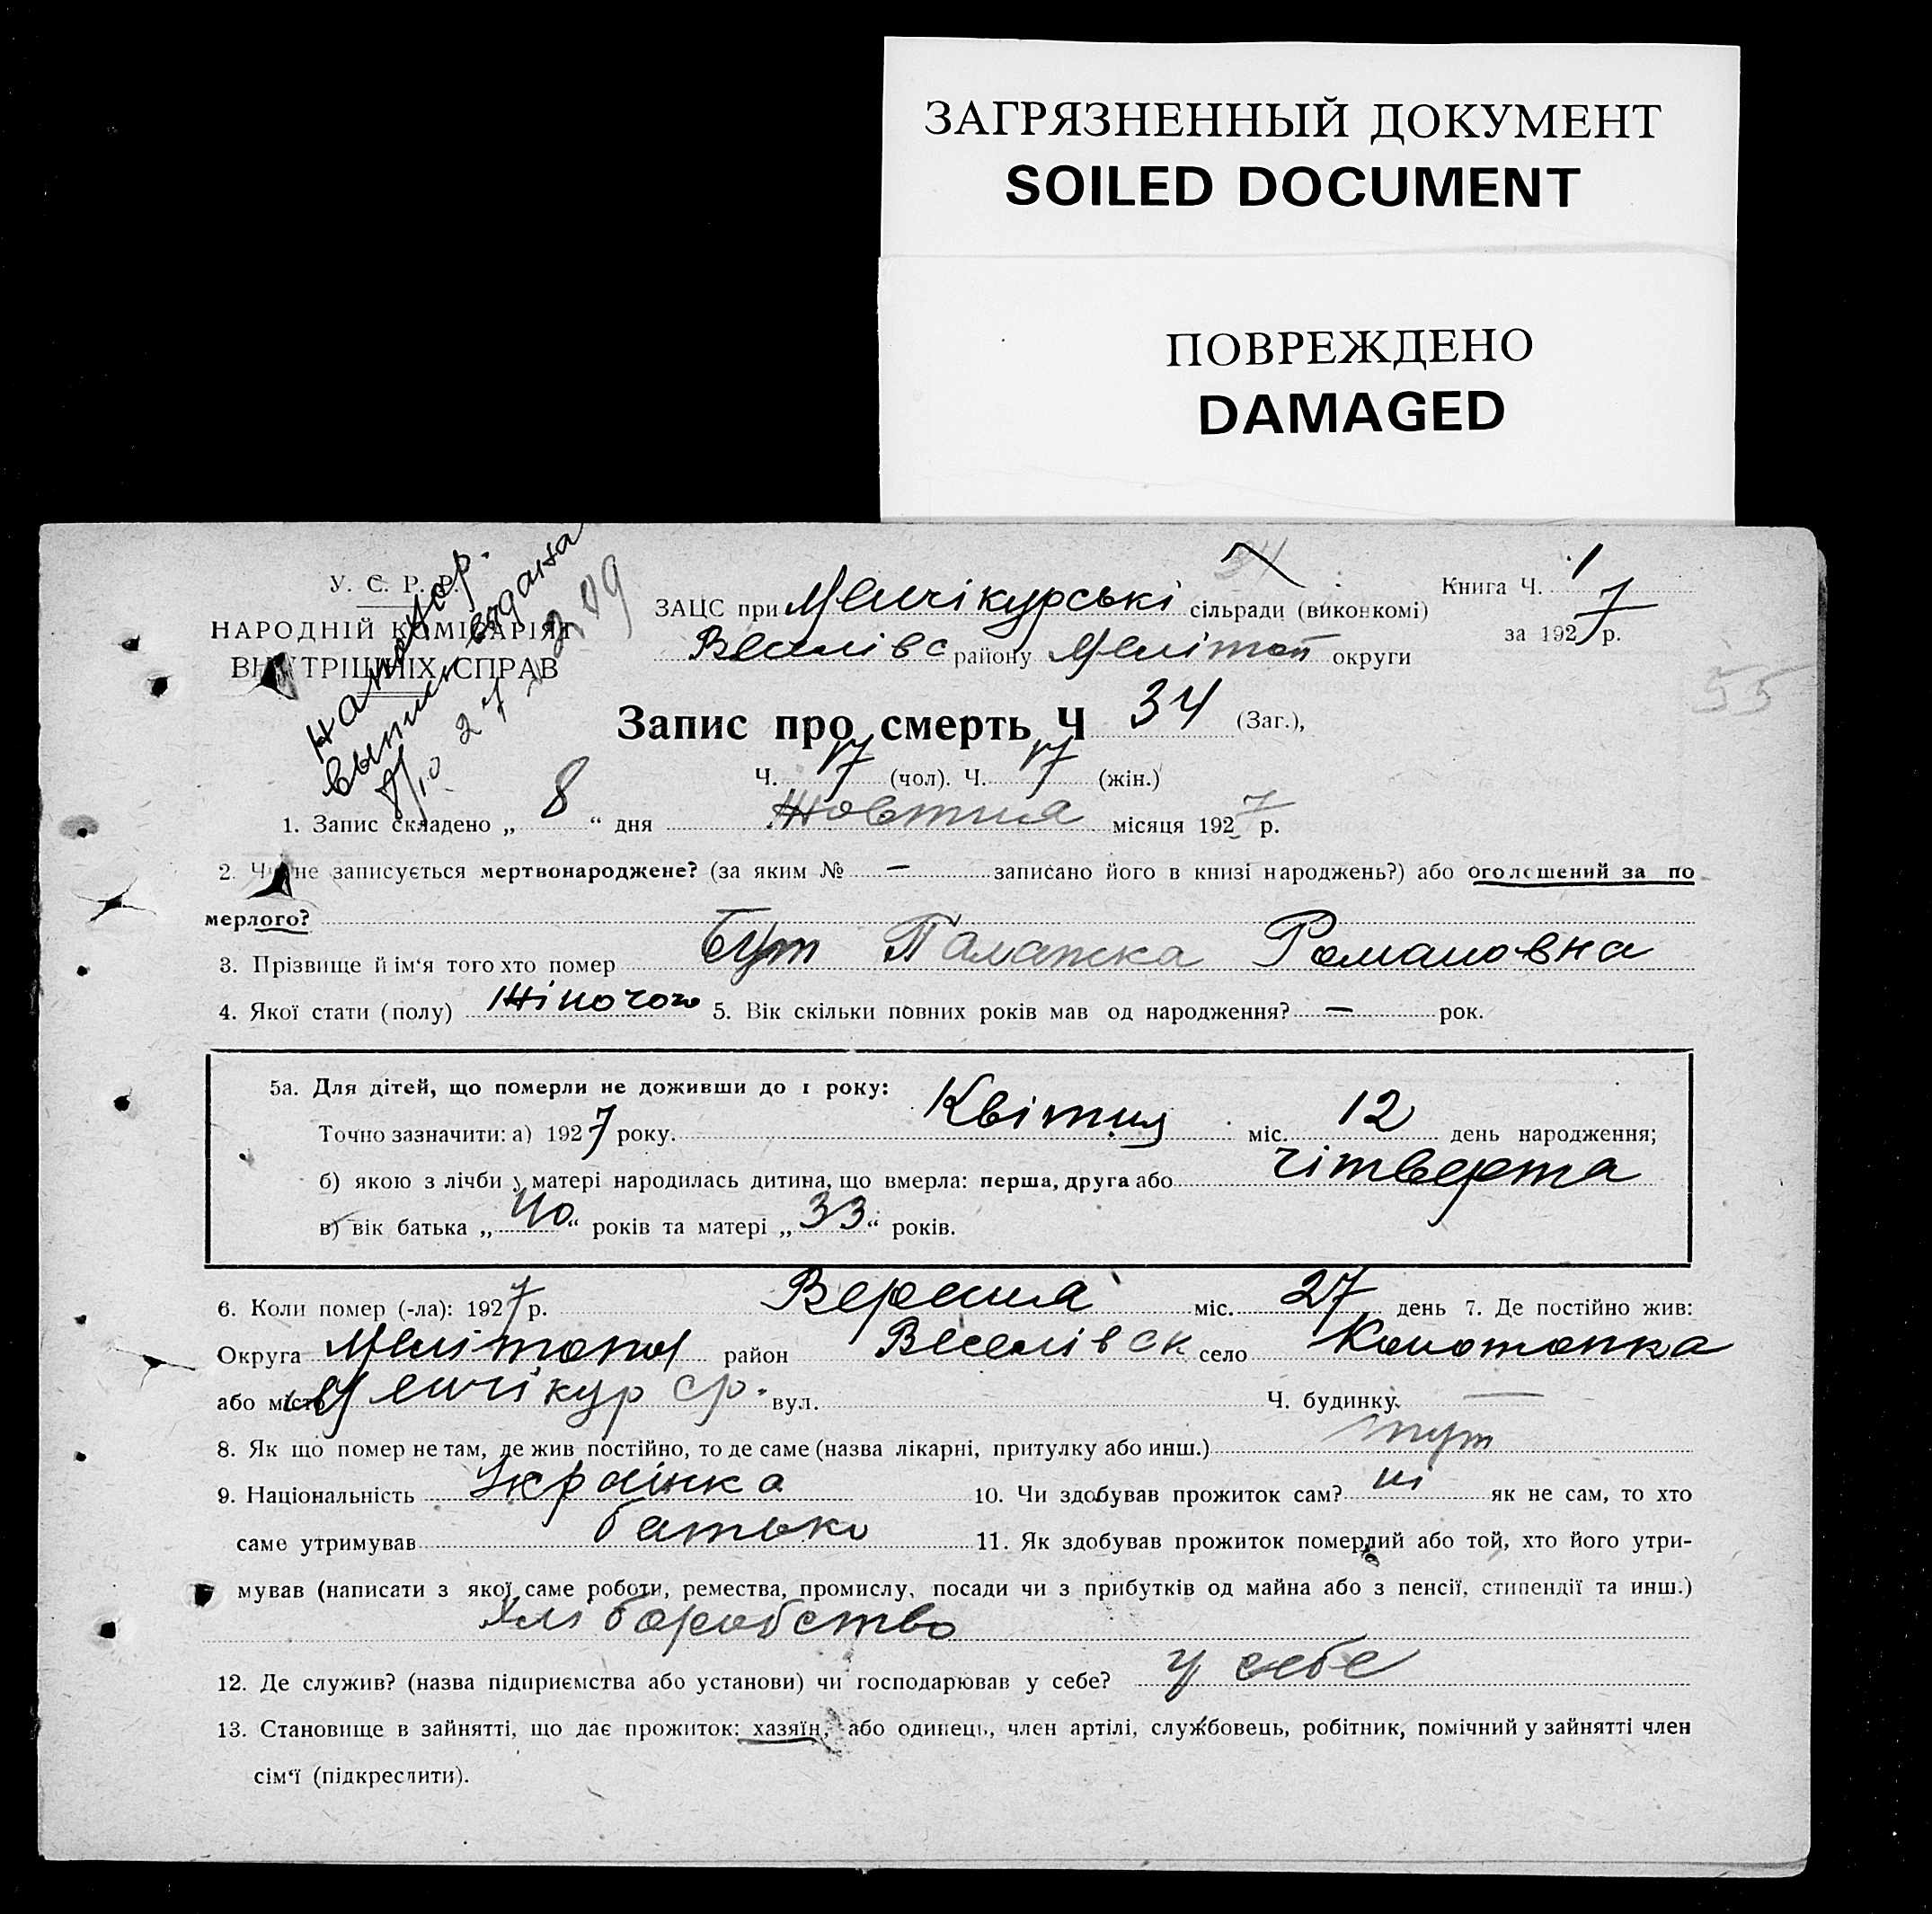 ЗАГРЯЗНЕННЫЙ ДОКУМЕНТ
SOILED DOCUMENT
ПОВРЕЖДЕНО
DAMAGED
У. С. Р. Р.
НАРОДНІЙ КОМІСАРІЯТ
ВНУТРІШНІХ СПРАВ
выпись выдана
8/10 27
Книга Ч. 1
за 1927 р.
ЗАЦС при Менчікурські сільради (виконкомі)
Веселівс району Мелітоп округи
55
Запис про смерть Ч 34 (Заг.),
Ч. 17 (чол). Ч. 17 (жін.)
1. Запис складено „ 8 “ дня Жовтня місяця 1927 р.
2. Чи не записується мертвонароджене? (за яким № — записано його в книзі народжень?) або оголошений за по
мерлого?
3. Прізвище й ім‘я того хто помер Бут Палажка Романовна
4. Якої стати (полу) Жіночого 5. Вік скільки повних років мав од народження? — рок.
5а. Для дітей, що померли не доживши до 1 року:
Точно зазначити: а) 1927 року. Квітня міс. 12 день народження;
б) якою з лічби у матері народилась дитина, що вмерла: перша, друга або чітверта
в) вік батька „ 40 “ років та матері „ 33 “ років.
6. Коли помер (-ла): 1927 р. Вересня міс. 27 день 7. Де постійно жив:
Округа Мелітопол район Веселівск село Конотопка
або місто Менчікур ср. вул. Ч. будинку. —
8. Як що помер не там, де жив постійно, то де саме (назва лікарні, притулку або инш.) тут
9. Національність Українка 10. Чи здобував прожиток сам? ні як не сам, то хто
саме утримував батько 11. Як здобував прожиток померлий або той, хто його утри-
мував (написати з якої саме роботи, ремества, промислу, посади чи з прибутків од майна або з пенсії, стипендії та инш.)
Хліборобство
12. Де служив? (назва підприємства або установи) чи господарював у себе? у себе
13. Становище в зайнятті, що дає прожиток: хазяїн, або одинець, член артілі, службовець, робітник, помічний у зайнятті член
сім‘ї (підкреслити).